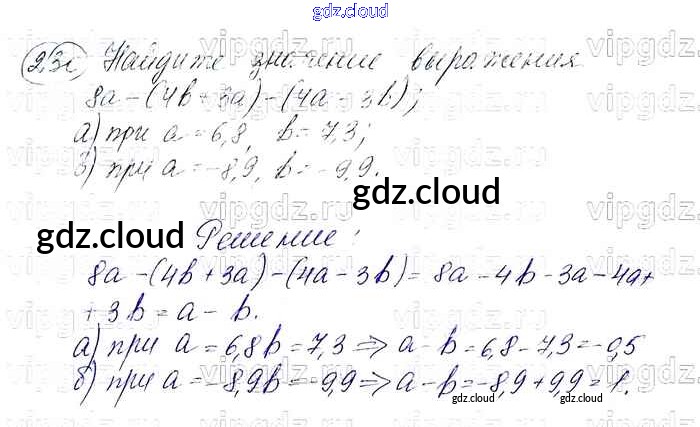 gdz.cloud
231 Найдите значение выражения
8a-(4b+3a)-(4a-3b);
а) при a=6,8, b=7,3;
б) при a=-8,9, b=-9,9.
gdz.cloud
gdz.cloud Решение:
8a-(4b+3a)-(4a-3b)=8a-4b-3a-4a+
+3b=a-b.
а) при a=6,8 b=7,3 => a-b=6,8-7,3=-0,5
б) при a=-8,9 b=-9,9 => a-b=-8,9+9,9=1.
gdz.cloud gdz.cloud